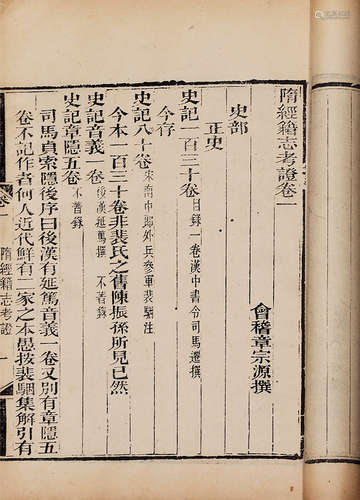 隋經籍志考證卷一
會稽章宗源撰
史部
正史
史記一百三十卷 目錄一卷漢中書令司馬遷撰
今存
史記八十卷 宋南中郎外兵參軍裴駰注
今本一百三十卷非裴氏之舊陳振孫所見已然
史記音義一卷 後漢延篤撰 不著錄
史記章隱五卷 不著錄
司馬貞索隱後序曰後漢有延篤音義一卷又別有章隱五
卷不記作者何人近代鮮有二家之本愚按裴駰集解引有
隋經籍志考證
一